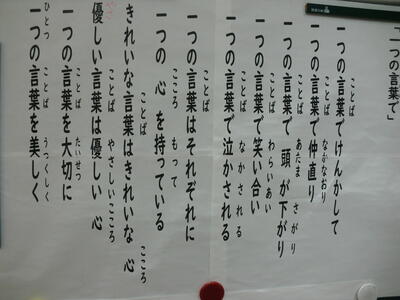 「一つの言葉で」
一つの言葉でけんかして
ことば
一つの言葉で仲直り
ことば なかなおり
一つの言葉で 頭 が下がり
ことば あたま さがり
一つの言葉で笑い合い
ことば わらいあい
一つの言葉で泣かされる
ことば なかされる
一つの言葉はそれぞれに
ことば
一つの 心 を持っている
こころ もって
きれいな言葉はきれいな 心
ことば こころ
優しい言葉は優しい 心
ことば やさしいこころ
一つの言葉を大切に
ことば たいせつ
一つの言葉を美しく
ひとつ ことば うつくしく